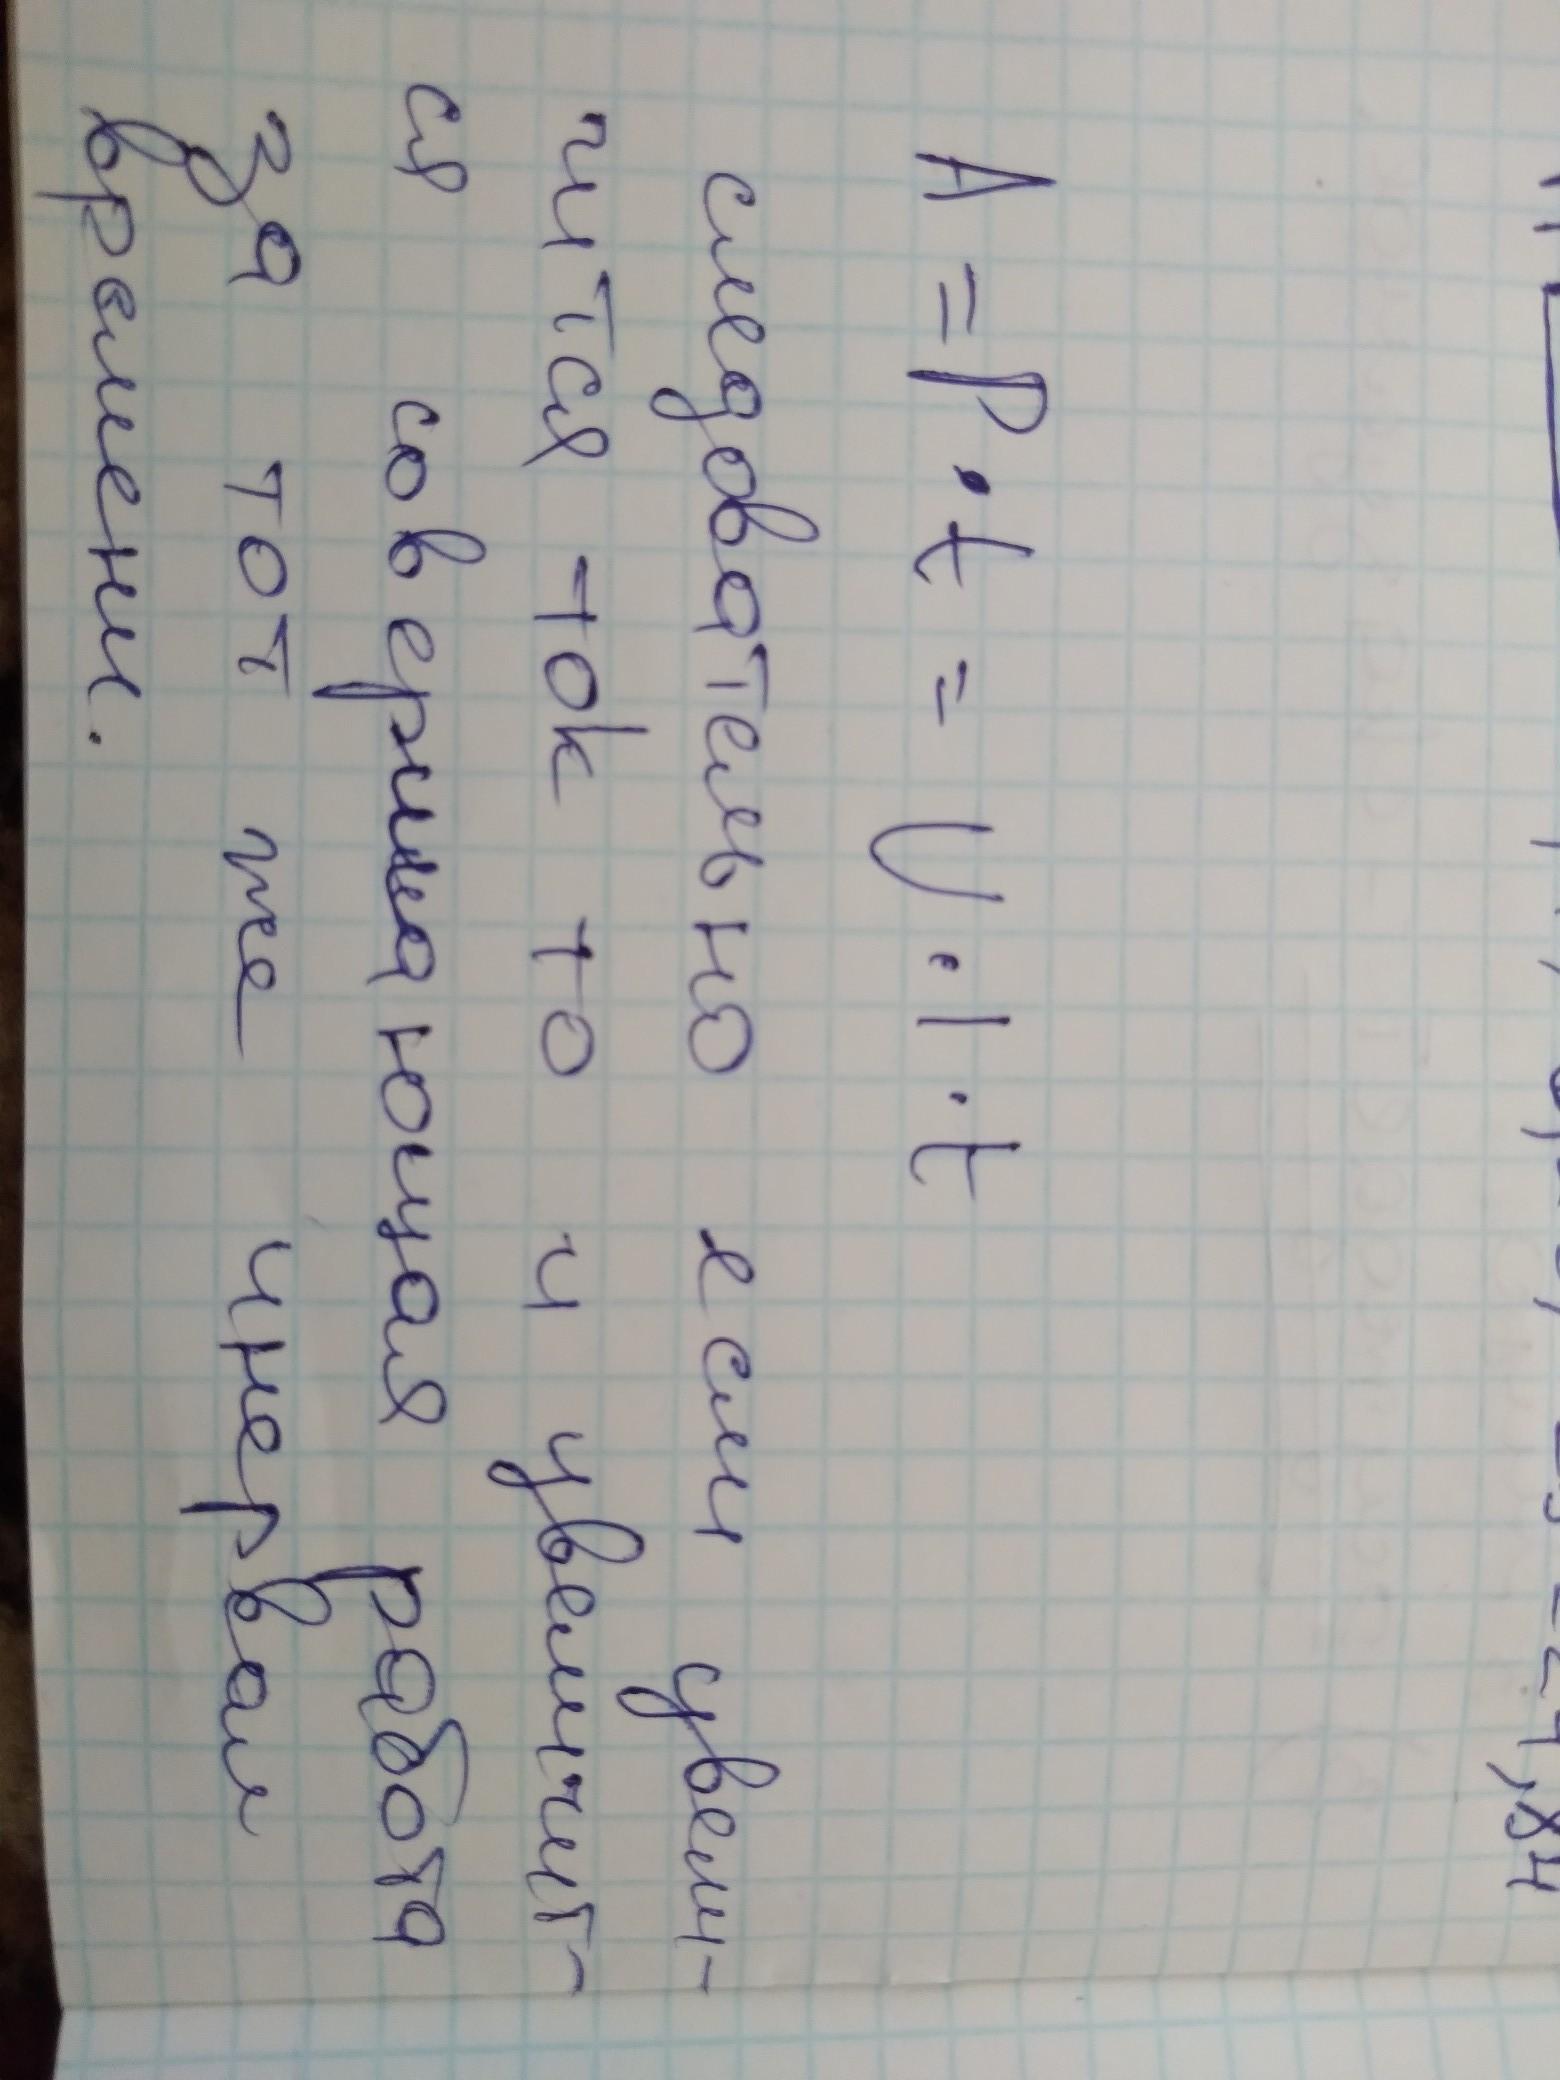 A = P · t = U · I · t
следовательно если увели-
чится ток то и увеличит-
ся совершающая работа
за тот же инервал
времени.